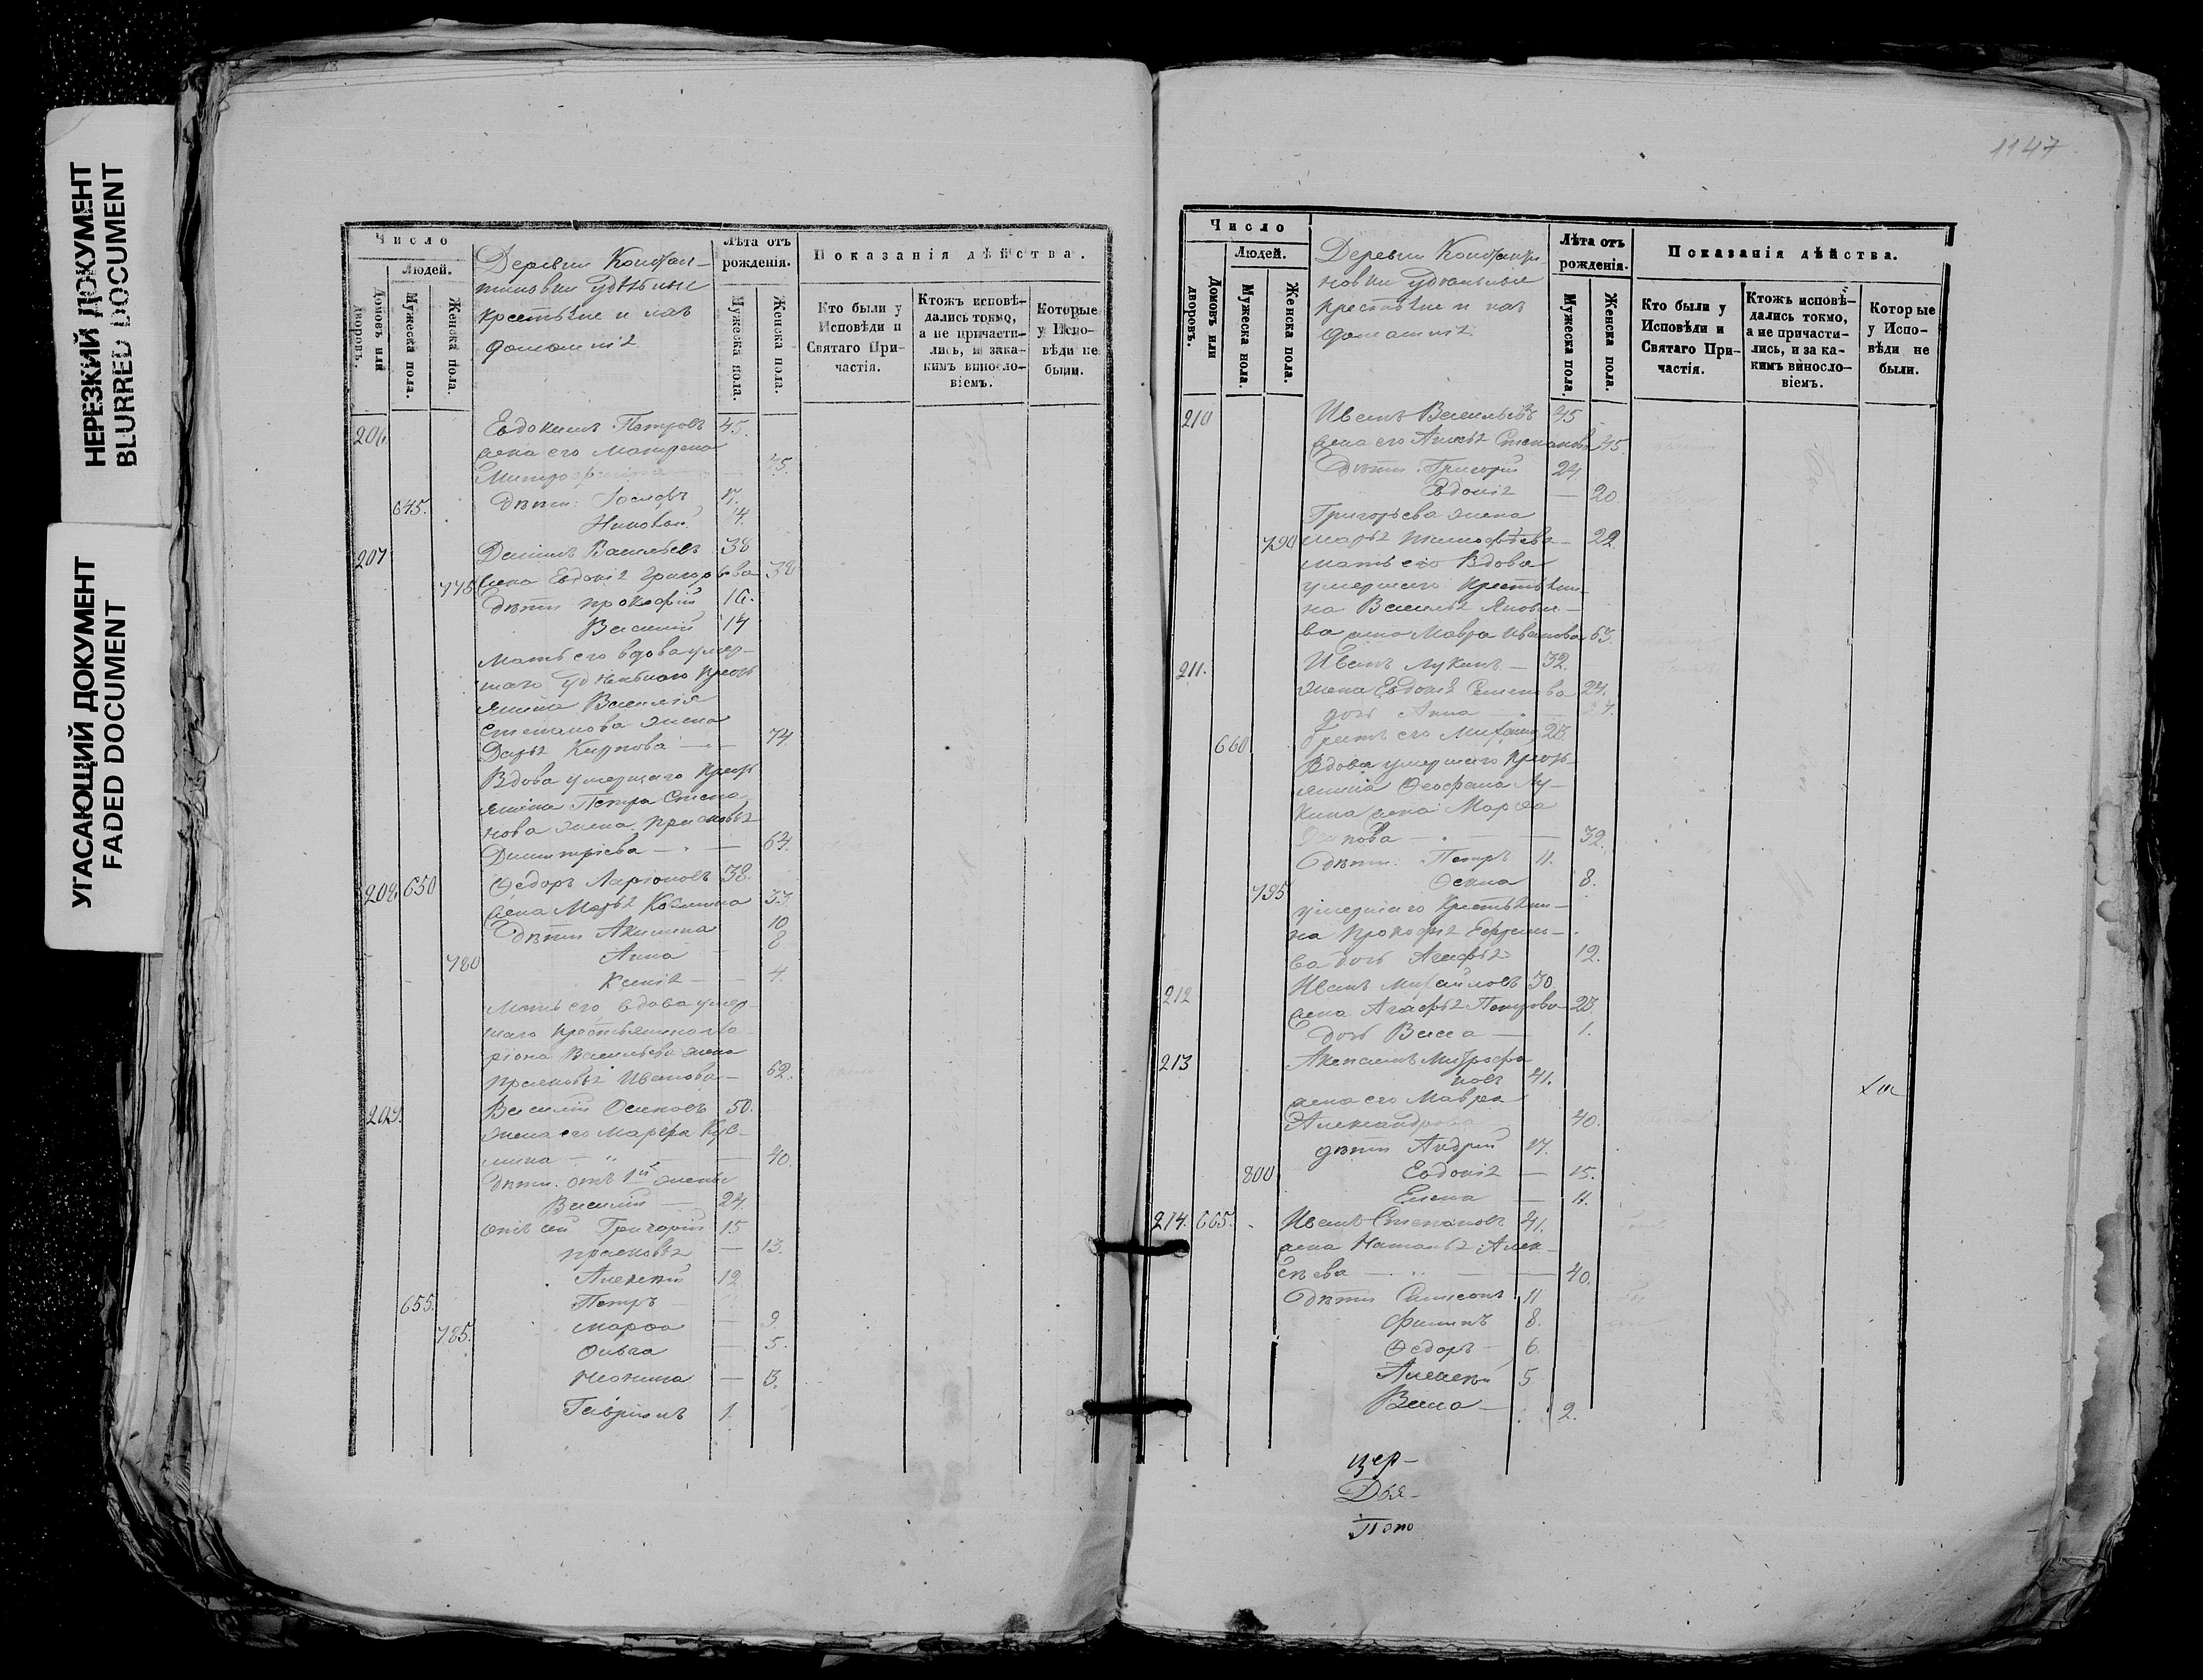 НЕРЕЗКИЙ ДОКУМЕНТ
BLURRED DOCUMENT
УГАСАЮЩИЙ ДОКУМЕНТ
FADED DOCUMENT
Число
Людей.
Домовъ или дворовъ.
Мужеска пола.
Женска пола.
Деревни Констан-
тиновки Удѣльные
крестьяне и ихъ
домашнія
Лѣта отъ рожденія.
Мужеска пола.
Женска пола.
Показанія дѣйства.
Кто были у Исповѣди и Святаго Причастія.
Ктожъ исповѣдались токмо, а не причастились, и за какимъ винословіемъ.
Которые у Исповѣди не были.
206 Евдокимъ Петровъ 45.
жена его Матрена
45.
645. Дѣти: 17.
Николай 14.
207 Васильевъ 38
жена Евдокія Григорьева 38
775 Дѣти Прокофій 16.
Василій 14
Мать его вдова умер-
шаго Удѣльнаго Крест
янина Василія
Степанова жена
Дарья Карпова 74.
Вдова умершаго Крест
янина Петра Степа
нова жена Прасковья
Димитріева 64.
208 650 Ѳедоръ Ларіоновъ 38.
жена Марья Козмина 33.
Дѣти Акилина 10
Анна 8
780 Ксенія 4.
Мать его вдова умер-
шаго Крестьянина Ла-
ріона Васильева жена
Прасковья Иванова 62.
209. Василій Осиповъ 50.
жена его Марѳа Куз-
мина 40.
Дѣти: отъ 1й жены
Василій 24.
отъ сей Григорій 15
Прасковья 13.
Алексѣй 12
655. Петръ
785. Марѳа 9.
Ольга 5.
3.
Гавріилъ 1.
1147
Число
Людей.
Домовъ или дворовъ.
Мужеска пола.
Женска пола.
Деревни Константи-
новки Удѣльные
крестьяне и ихъ
домашнія
Лѣта отъ рожденія.
Мужеска пола.
Женска пола.
Показанія дѣйства.
Кто были у Исповѣди и Святаго Причастія.
Ктожъ исповѣдались токмо, а не причастились, и за какимъ винословіемъ.
Которые у Исповѣди не были.
210 Иванъ Васильевъ 45
жена его Степанова 45.
Дѣти: Григорій 24
Евдокія 20.
Григорьева жена
790 Марья Тимофѣева 22.
мать его Вдова
умершаго Крестьяни-
на Василья Яковле-
ва жена Мавра Иванова 63.
211. Иванъ Лукинъ 32.
жена Евдокія Семенова 24.
дочь Анна
660 братъ его Михаилъ 23.
Вдова умершаго Крест
янина Ѳеофана Лу-
кина жена Марѳа
32.
Дѣти: Петръ 11.
795 8.
умершаго Крестьяни-
на Прокофья Ефремо-
ва дочь Агафья 12.
212 Иванъ Михайловъ 30.
жена Агафья Петрова 23.
дочь Васса 1.
213 Митрофа
новъ 41.
жена его Мавра
Александрова 40.
дѣти Андрей 17.
800 Евдокія 15.
Елена 11.
214. 665. Иванъ Степановъ 41.
жена Наталья Алек-
сѣева 40.
Дѣти Самсонъ 11
Филипъ 8.
Ѳедоръ 6.
Алексѣй 5
Васса 2.
Цер-
Дья-
Поно